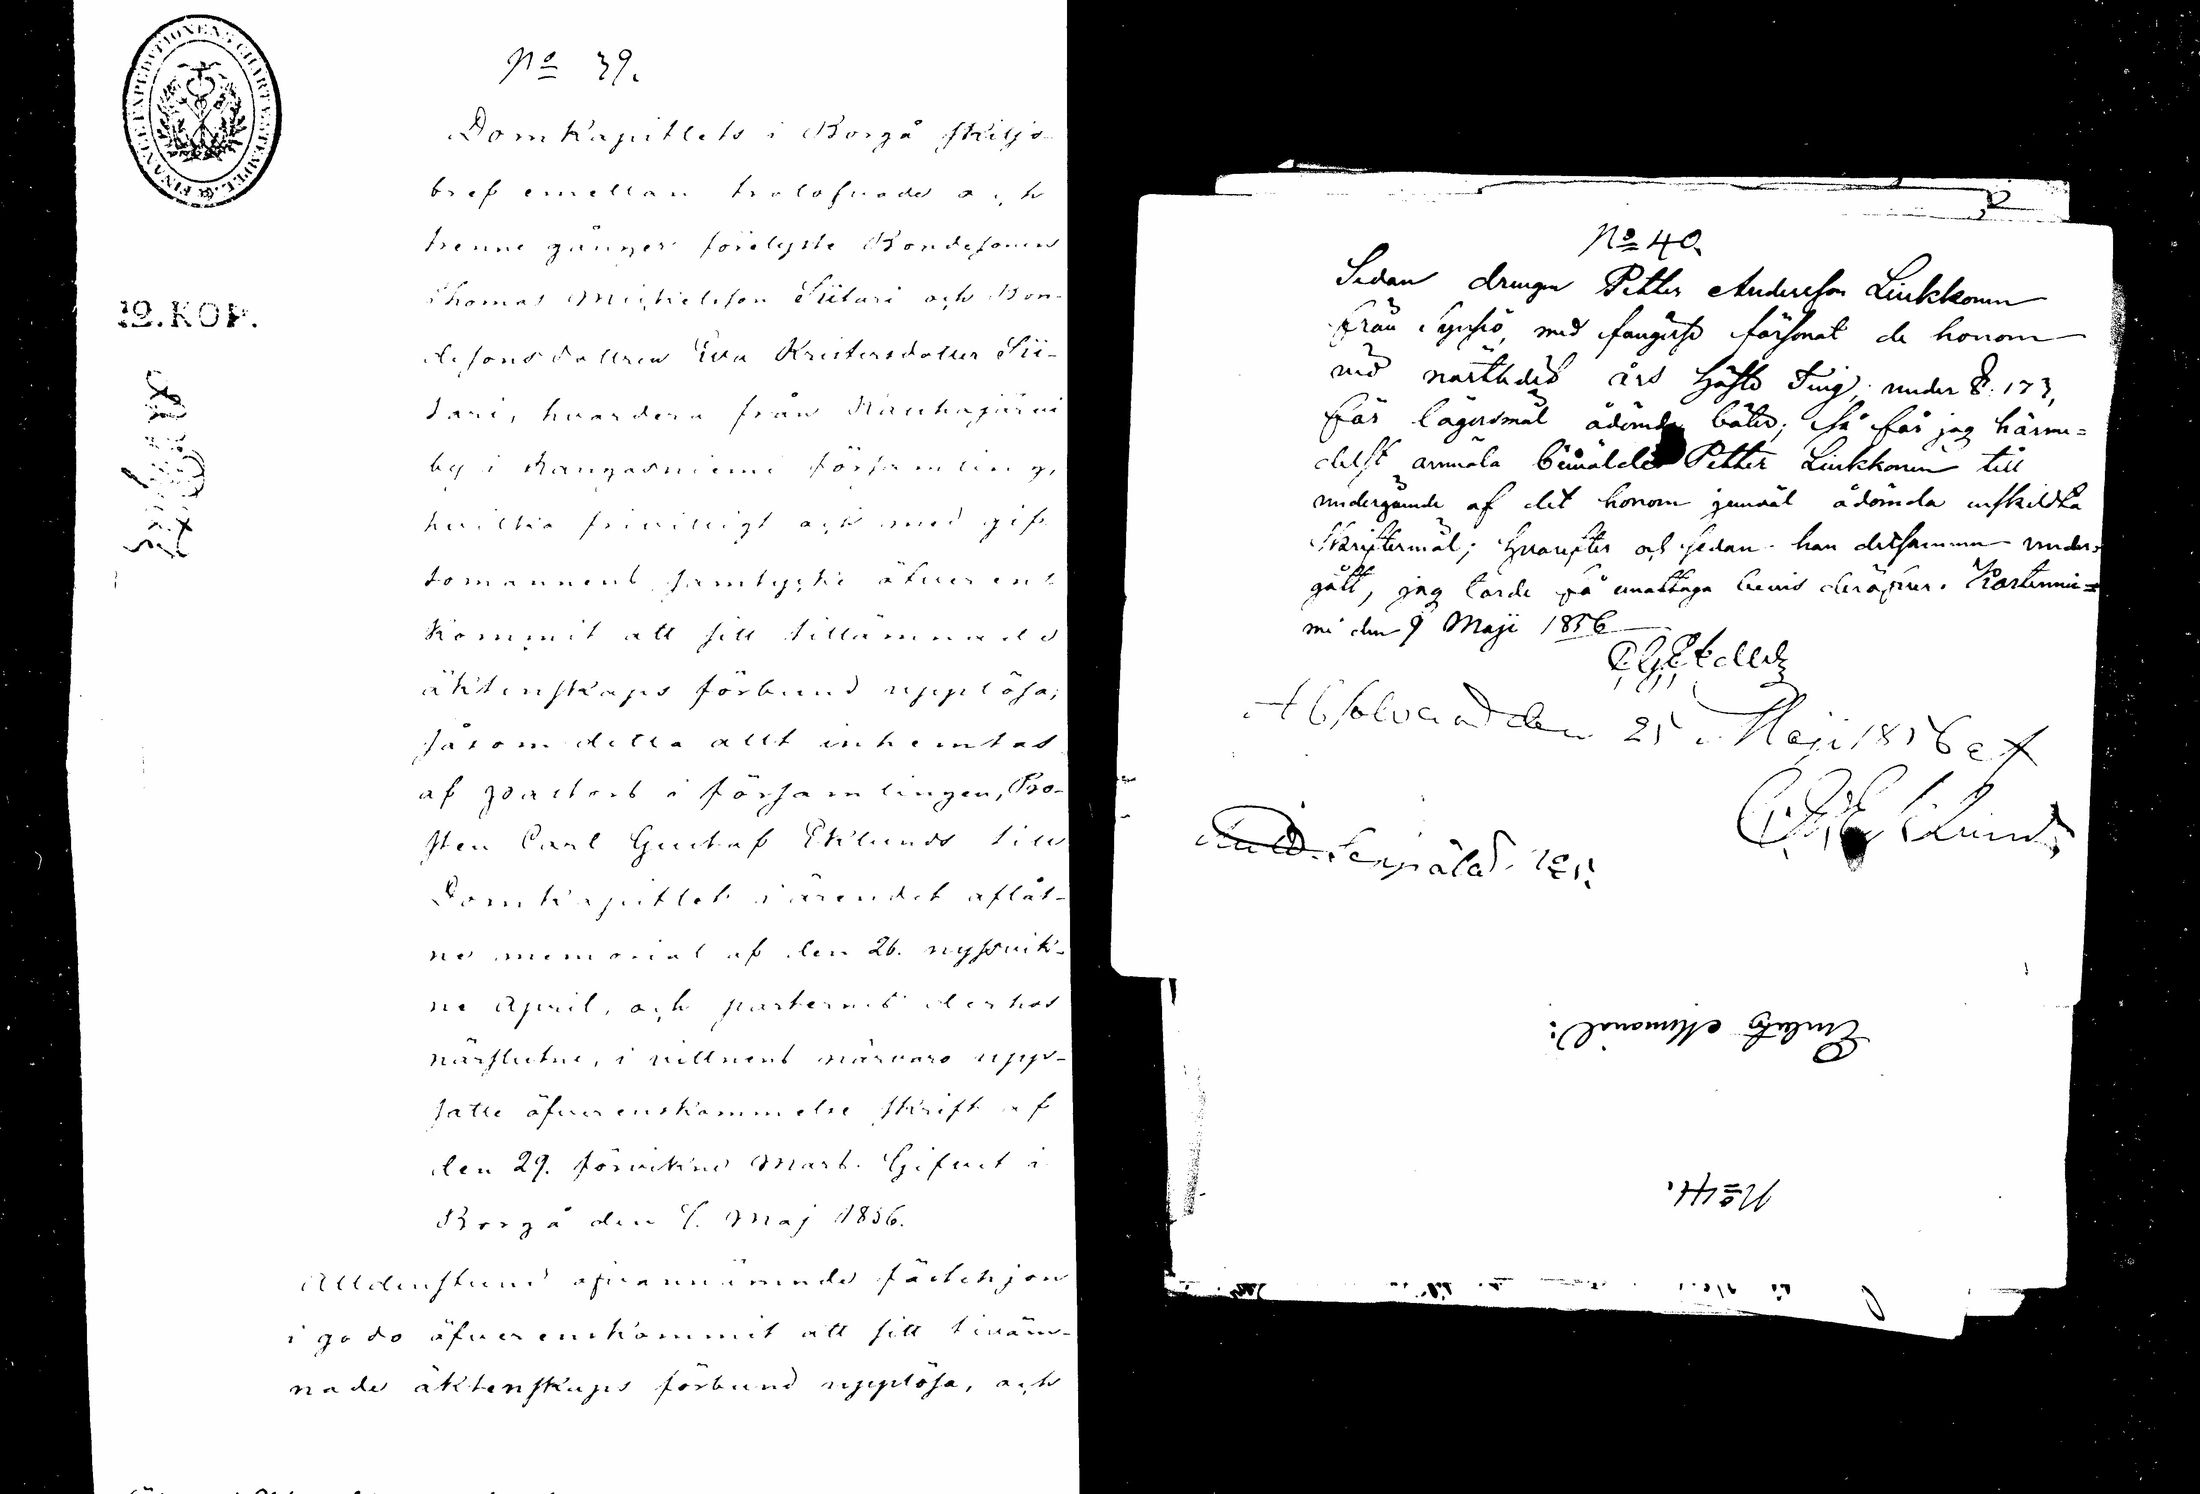 FINANCE EXPEDITIONENS CHARTÆ STEMPEL.
No 39.
12. KOP.
Domkapitlets i Borgå skiljo-
bref emellan trolofvade och
trenne gånger förelyste Bondesonen
Thomas Michelsson Siitari och Bon-
desonsdottren Eva Kristersdotter Sii-
tari, hvardera från Kauhajärvi
by i Kangasniemi församling,
hvilka frivilligt och med gif-
tomannens samtycke öfverens-
kommit att sitt tillämnade
äktenskaps förbund upplösa;
såsom detta allt inhemtas
af Pastors i församlingen, Pro-
sten Carl Gustaf Eklunds till
Domkapitlet i ärendet aflåt-
ne memorial af den 26. nyssvik-
ne April, och parternes derhos
närslutne, i vittnens närvaro upp-
satte öfverenskommelse skrift af
den 29. förvikne Mars. Gifvet i
Borgå den 7. Maj 1856.
Alldenstund ofvannämnde fästehjon
i godo öfverenskommit att sitt tilläm-
nade äktenskaps förbund upplösa, och
No 40.
Sedan drengen Petter Andersson Liukkonen
från Synsiö, med fängelse försonat de honom
vid nästledit års Höste Ting, under §. 173,
för lägersmål ådömde böter; så får jag härme-
delst anmäla bemälde Petter Liukkonen till
undergående af det honom jemväl ådömda enskildta
Skriftermål; hvarefter och sedan han detsamma under-
gått, jag torde få emottaga bevis deröfver. Koskenmie-
mi den 9 Maji 1856
Absolverad den 25 Maji 1856 af
C G Eklund
No 41.
Ember Memorial: